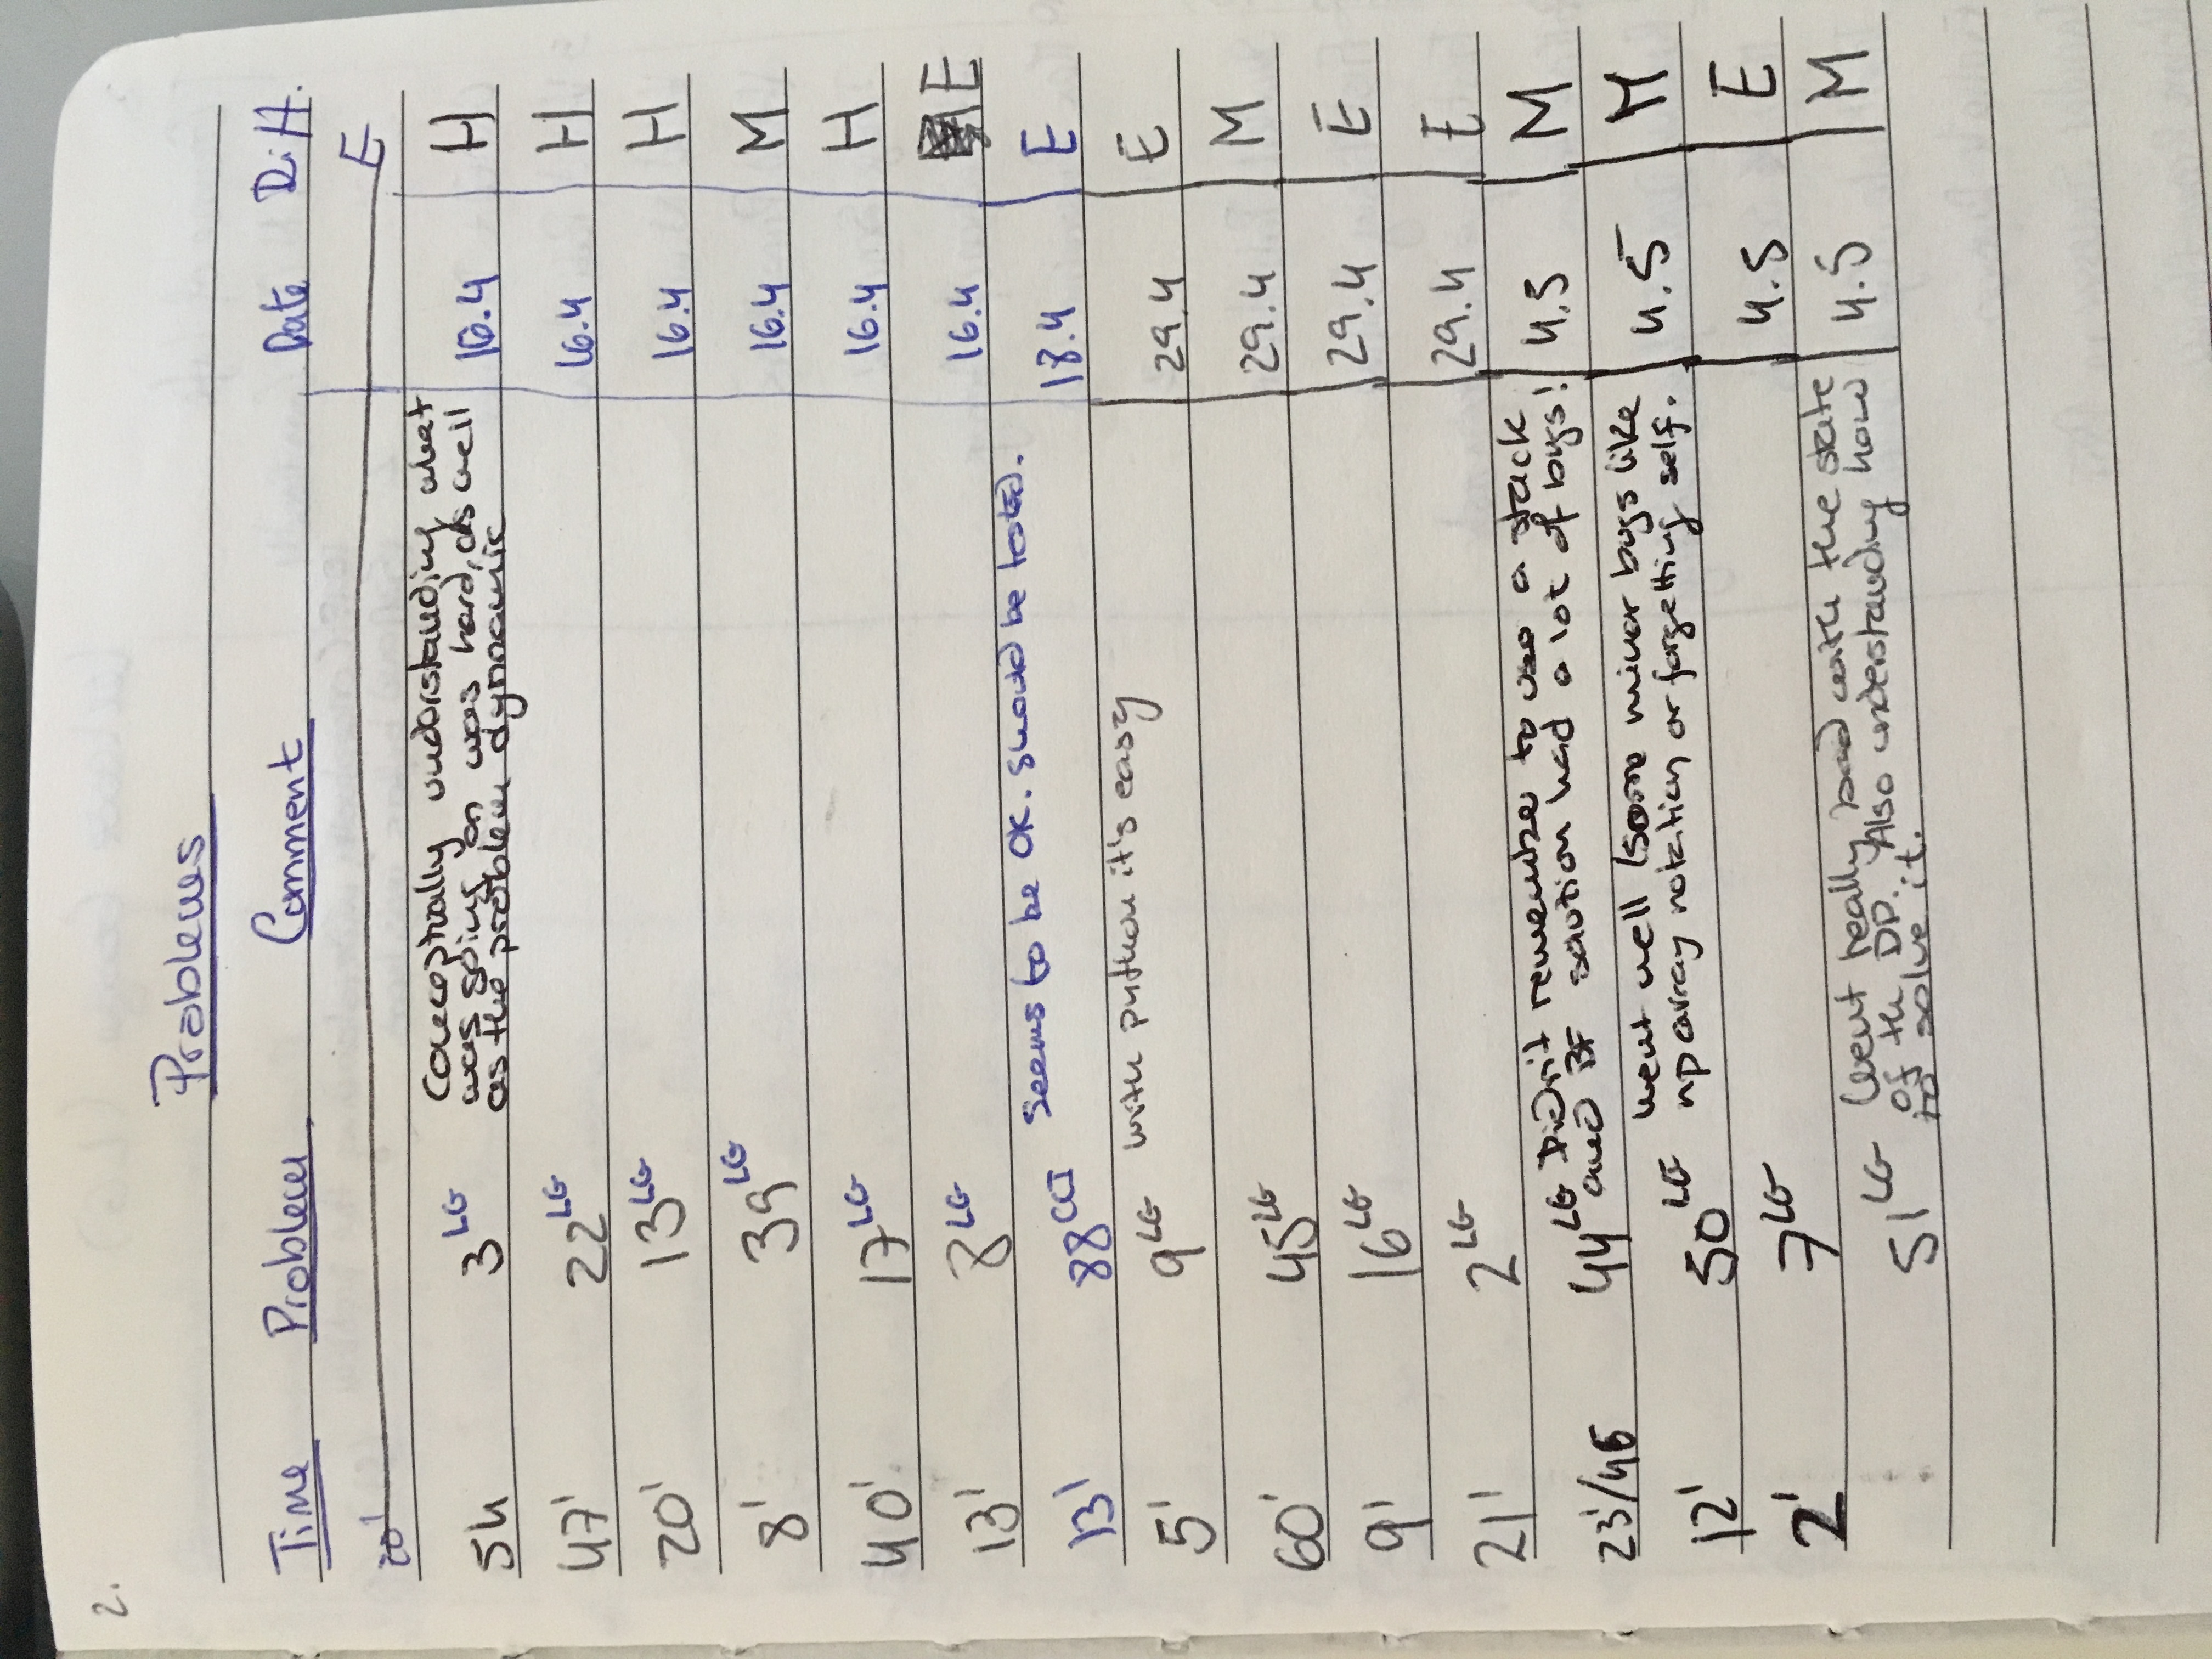 2.
Problems
Time Problem Comment Date Diff.
20' E
Conceptually understanding what
was going on was hard, as well
5h 3 LG as the problem dynnamic 16.4 H
47' 22 LG 16.4 H
20' 13 LG 16.4 H
8' 39 LG 16.4 M
40' 17 LG 16.4 H
13' 8 LG 16.4 E
Seems to be OK. Should be tested.
13' 88 CCI 18.4 E
with python it's easy
5' 9 LG 29.4 E
60' 45 LG 29.4 M
9' 16 LG 29.4 E
21' 2 LG 29.4 E
Didn't remember to use a stack
23'/46 44 LG and BF solution had a lot of bugs! 4.5 M
Went well (some minor bugs like
12' 50 LG np array notation or forgetting self. 4.5 M
2' 7 LG 4.5 E
Went really bad with the state
51 LG of the DP. Also understanding how 4.5 M
to solve it.